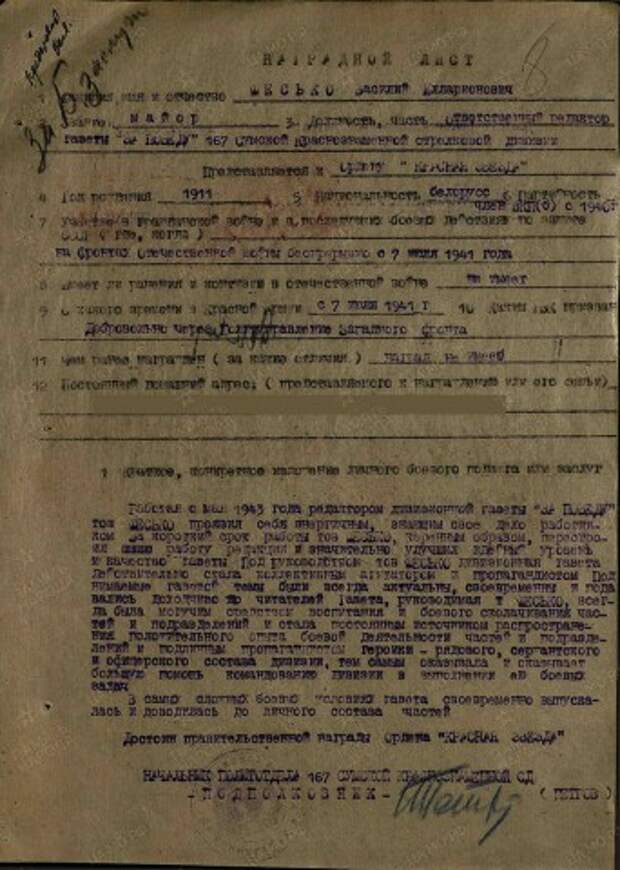 НАГРАДНОЙ ЛИСТ
8
1 Фамилия имя и отчество ФЕСЬКО Василий Илларионович
2 Звание майор 3 Должность, часть Ответственный редактор
газеты "ЗА ПОБЕДУ" 167 Сумской Краснознаменной стрелковой дивизии
Представляется к Ордену "КРАСНАЯ ЗВЕЗДА"
4 Год рождения 1911 5 Национальность белорусс 6 Партийность
член ВКП(б) с 1940г
7 Участие в гражданской войне и в последующих боевых действиях по защите
СССР ( где, когда )
на фронтах Отечественной войны беспрерывно с 7 июля 1941 года
8 Имеет ли ранения и контузии в отечественной войне не имеет
9 С какого времени в Красной Армии с 7 июля 1941 г 10 Каким РВК призван
Добровольно через Политуправление Западного фронта
11 Чем ранее награжден ( за какие отличия ) наград не имеет
12 Постоянный домашний адрес: ( представляемого к награждению или его семьи)
1 Краткое, конкретное изложение личного боевого подвига или заслуг
Работая с мая 1943 года редактором дивизионной газеты "ЗА ПОБЕДУ"
тов ФЕСЬКО проявил себя энергичным, знающим свое дело работни-
ком За короткий срок работы тов ФЕСЬКО, коренным образом, перестро-
ил свою работу редакции и значительно улучшил идейный уровень
и качество газеты Под руководством тов ФЕСЬКО дивизионная газета
действительно стала коллективным агитатором и пропагандистом Под
нимаемые газетой темы были всегда актуальны, своевременны и пода
вались доходчиво до читателей Газета, руководимая т ФЕСЬКО, всег-
да была могучим средством воспитания и боевого сколачивания час-
тей и подразделений и стала постоянным источником распростране-
ния положительного опыта боевой деятельности частей и подразде-
лений и подлинным пропагандистом героики - рядового, сержантского
и офицерского состава дивизии, тем самым оказывала и оказывает
большую помощь командованию дивизии в выполнении ею боевых
задач
В самых сложных боевых условиях газета своевременно выпуска-
лась и доводилась до личного состава частей
Достоин правительственной награды Ордена "КРАСНАЯ ЗВЕЗДА"
НАЧАЛЬНИК ПОЛИТОТДЕЛА 167 СУМСКОЙ КРАСНОЗНАМЕННОЙ СД
- ПОДПОЛКОВНИК - ( ПЕТРОВ )